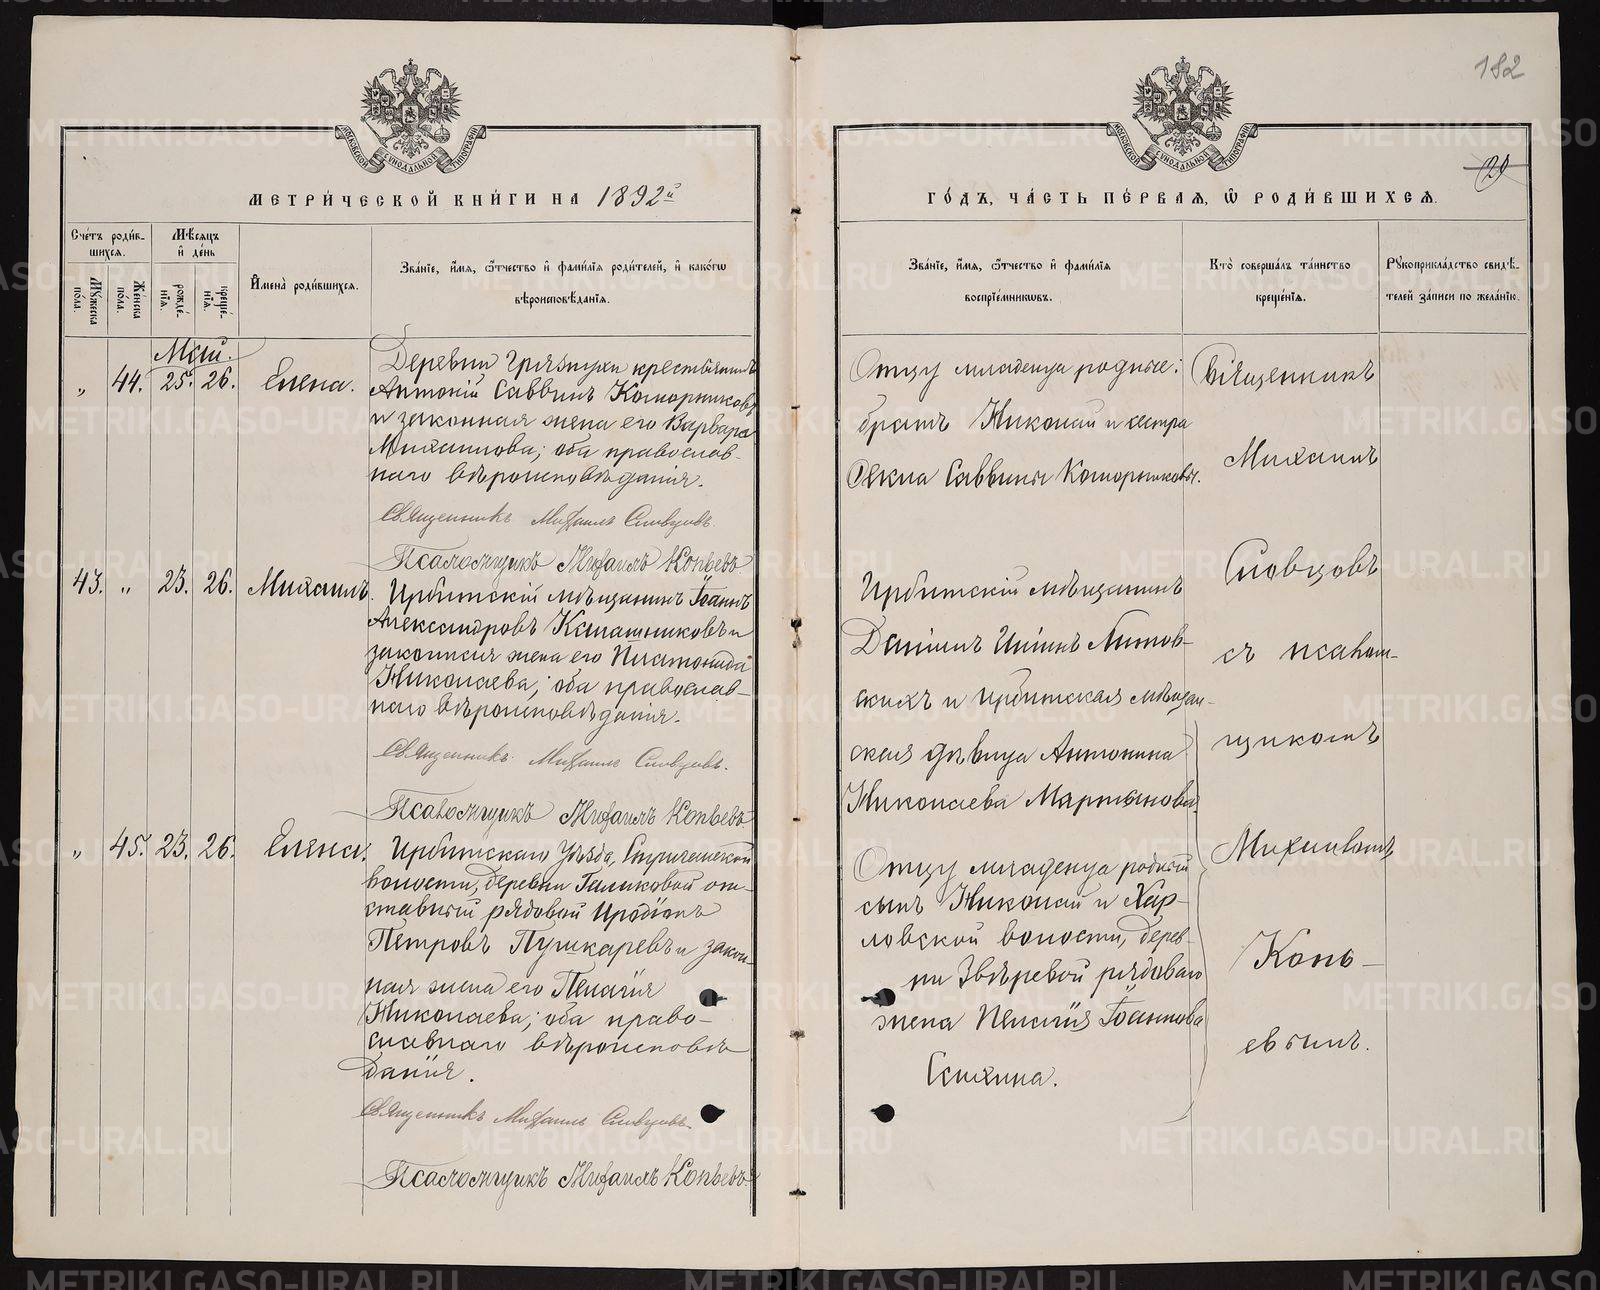 182
20
МОСКОВСКОЙ СѴНОДАЛЬНОЙ ТИПОГРАФІИ
МОСКОВСКОЙ СѴНОДАЛЬНОЙ ТИПОГРАФІИ
МЕТРИ́ЧЕСКОЙ КНИ́ГИ НА 1892й
ГО́ДЪ, ЧА́СТЬ ПЕ́РВАѦ, Ѡ҆ РОДИ́ВШИХСѦ.
Сче́тъ роди́в-
шихсѧ.
Мꙋ́жеска по́ла.
Же́нска по́ла.
Мѣ́сѧцъ
и҆ де́нь
рожде́-
нїѧ.
креще́-
нїѧ.
И҆мена̀ роди́вшихсѧ.
Зва́нїе, и҆́мѧ, ѻ҆́тчество и҆ фами́лїѧ роди́телей, и҆ како́гѡ
вѣроисповѣ́данїѧ.
Зва́нїе, и҆́мѧ, ѻ҆́тчество и҆ фами́лїѧ
воспрїе́мниковъ.
Кто̀ соверша́лъ та́инство
креще́нїѧ.
Рꙋкоприкла́дство свидѣ́-
телей за́писи по жела́нїю.
Май.
„ 44. 25. 26. Елена.
Деревни Грязнухи крестьянинъ
Антоній Саввинъ Коморниковъ
и законная жена его Варвара
Михаилова; оба православ-
наго вѣроисповѣданія.
Священникъ Михаилъ Словцовъ.
Псаломщикъ Михаилъ Копьевъ
Отцу младенца родные:
братъ Николай и сестра
Ѳекла Саввины Коморниковы.
Священникъ
Михаилъ
Словцовъ
съ псалом-
щикомъ
Михаиломъ
Копь-
евымъ.
43. „ 23. 26. Михаилъ.
Ирбитскій мѣщанинъ Іоаннъ
Александровъ Калашниковъ и
законная жена его Платонида
Николаева; оба православ-
наго вѣроисповѣданія.
Священникъ Михаилъ Словцовъ.
Псаломщикъ Михаилъ Копьевъ
Ирбитскій мѣщанинъ
Даніилъ Ильинъ Литов-
скихъ и ирбитская мѣщан-
ская дѣвица Антонина
Николаева Мартынова.
„ 45. 23. 26. Елена.
Ирбитскаго Уѣзда, Стриганской
волости, деревни Галиковой от-
ставный рядовой Иродіонъ
Петровъ Пушкаревъ и закон-
ная жена его Пелагія
Николаева; оба право-
славнаго вѣроисповѣ-
данія.
Священникъ Михаилъ Словцовъ.
Псаломщикъ Михаилъ Копьевъ
Отцу младенца родный
сынъ Николай и Хар-
ловской волости, дерев-
ни Звѣревой рядоваго
жена Пелагія Іоаннова
METRIKI.GASO-URAL.RU